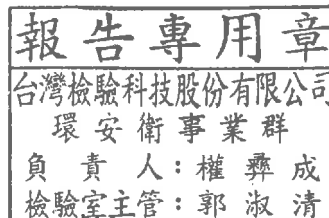 報告專用章
台灣檢驗科技股份有限公司
環安衛事業群
負責人：權彞成
檢驗室主管：郭淑清